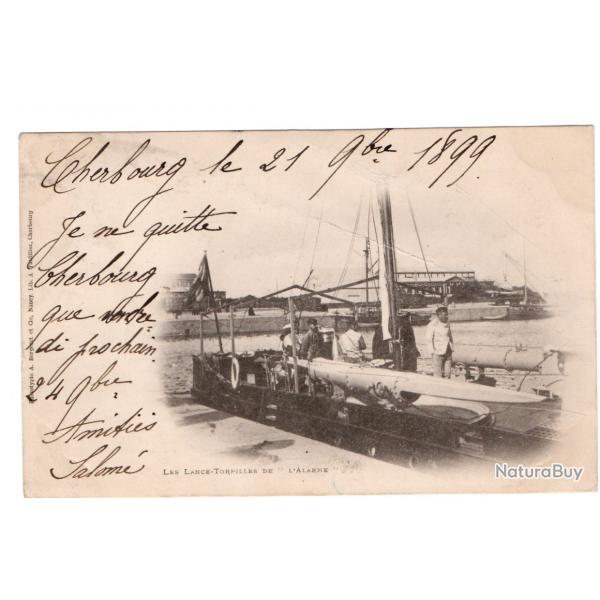 Cherbourg le 21 9bre 1899
Je ne quitte
Cherbourg
que
di prochain
24 9bre
Amitiés
Salomé
LES LANCE-TORPILLES DE " L'ALARME "
A. Bergeret et Cie, Nancy. Lib. A. Cherbourg
NaturaBuy